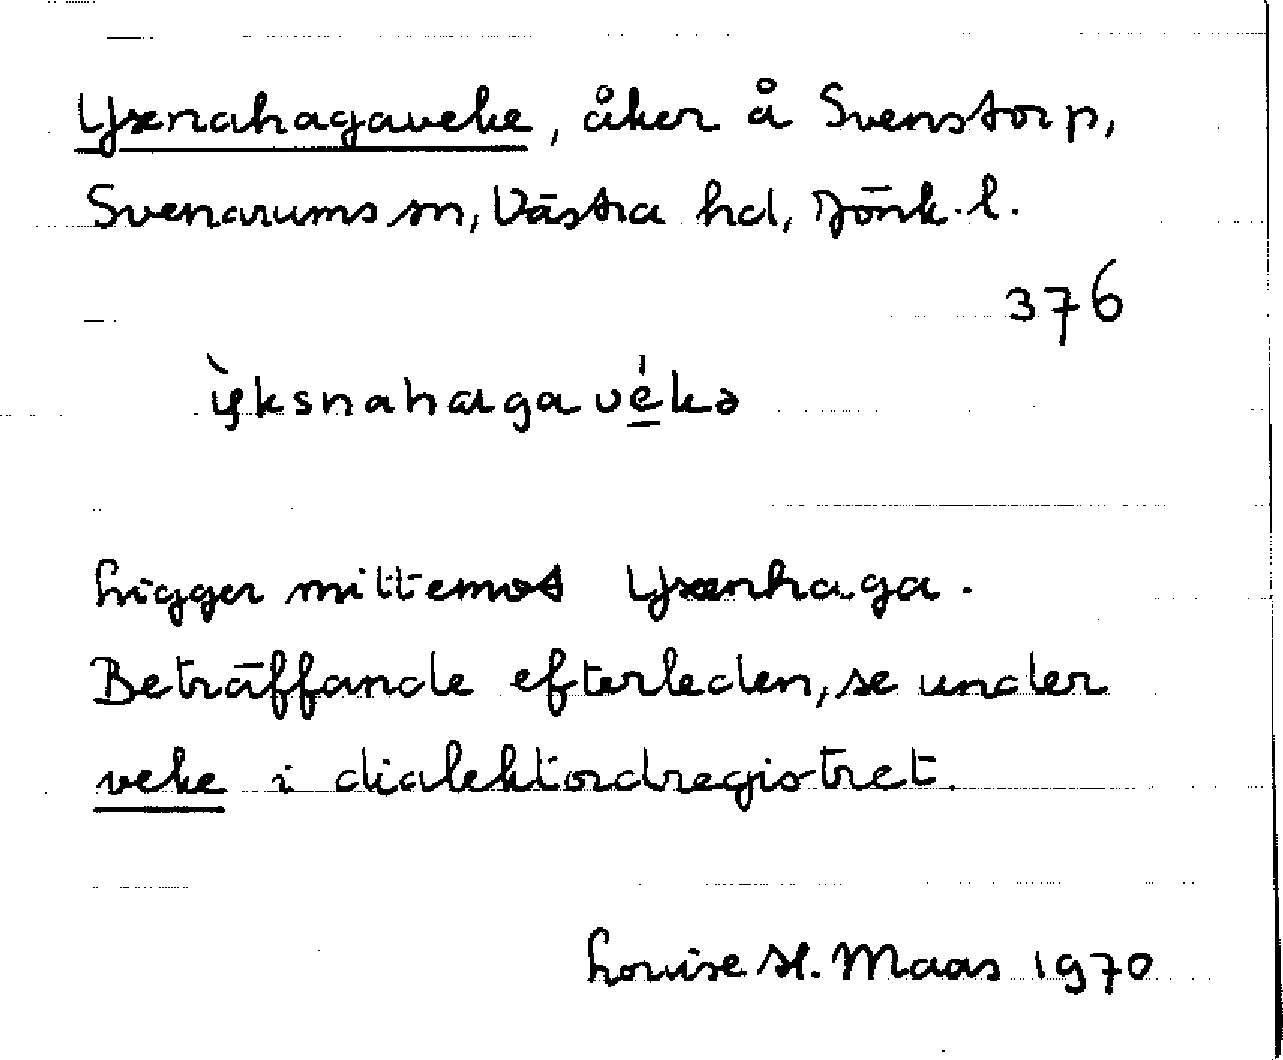 Yxnahagaveke, åker å Svenstorp,
Svenarums sn, Västra hd, Jönk. l.
376
Ligger mittemot Yxenhaga.
Beträffande efterleden, se under
veke i dialektordregistret.
Louise st. Maas 1970